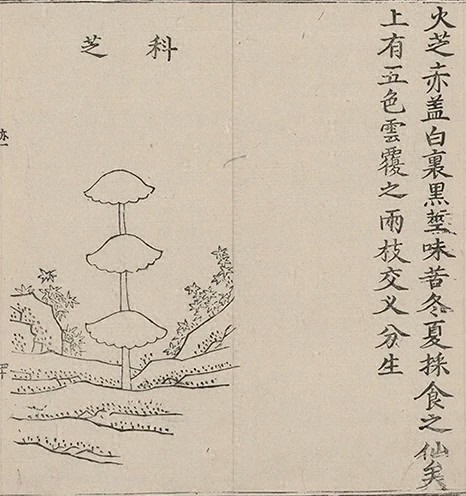 火芝赤盖白裏黒莖味苦冬夏採食之仙矣
上有五色雲覆之兩枝交义分生
科芝